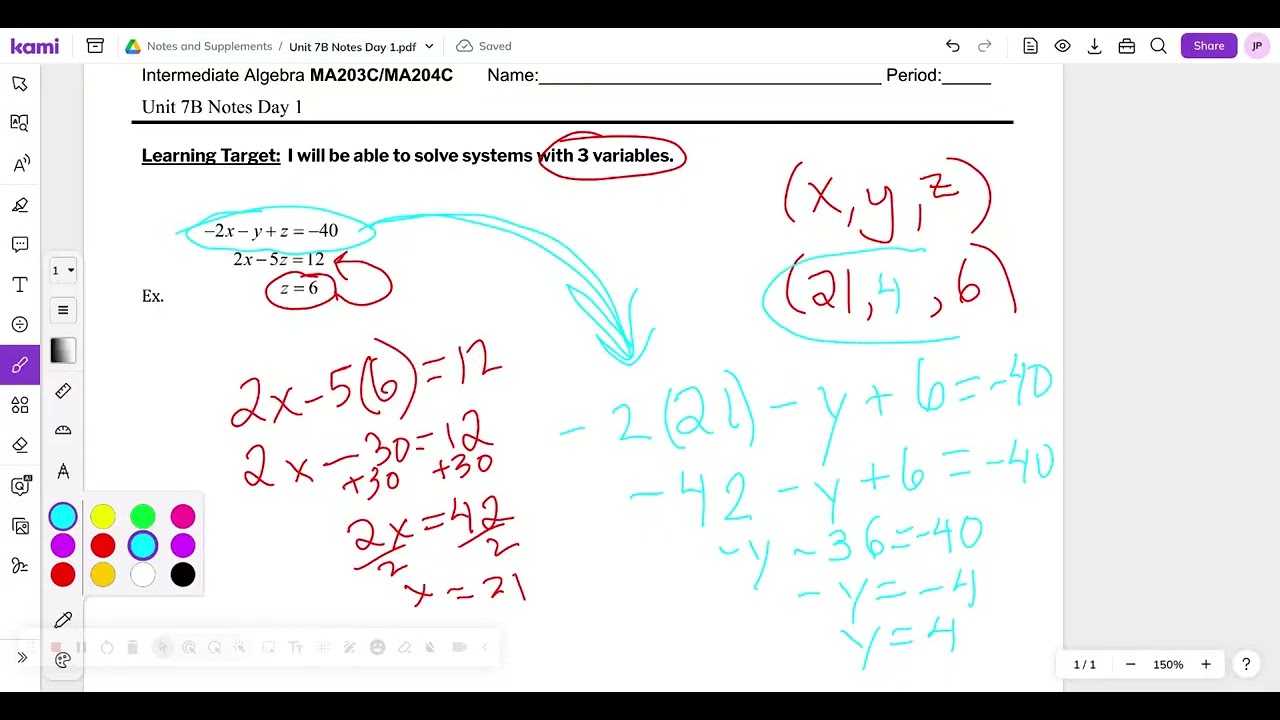 kami
Notes and Supplements / Unit 7B Notes Day 1.pdf
Saved
Share
JP
Intermediate Algebra MA203C/MA204C Name:____ Period:____
Unit 7B Notes Day 1
Learning Target: I will be able to solve systems with 3 variables.
−2x − y + z = −40
2x − 5z = 12
z = 6
Ex.
(x, y, z)
(21, 4, 6)
2x - 5(6) = 12
2x - 30 = 12
+30 +30
2x = 42
2 2
x = 21
-2(21) - y + 6 = -40
-42 - y + 6 = -40
-y - 36 = -40
-y = -4
y = 4
1
AI
Tт
1 / 1
150%
?